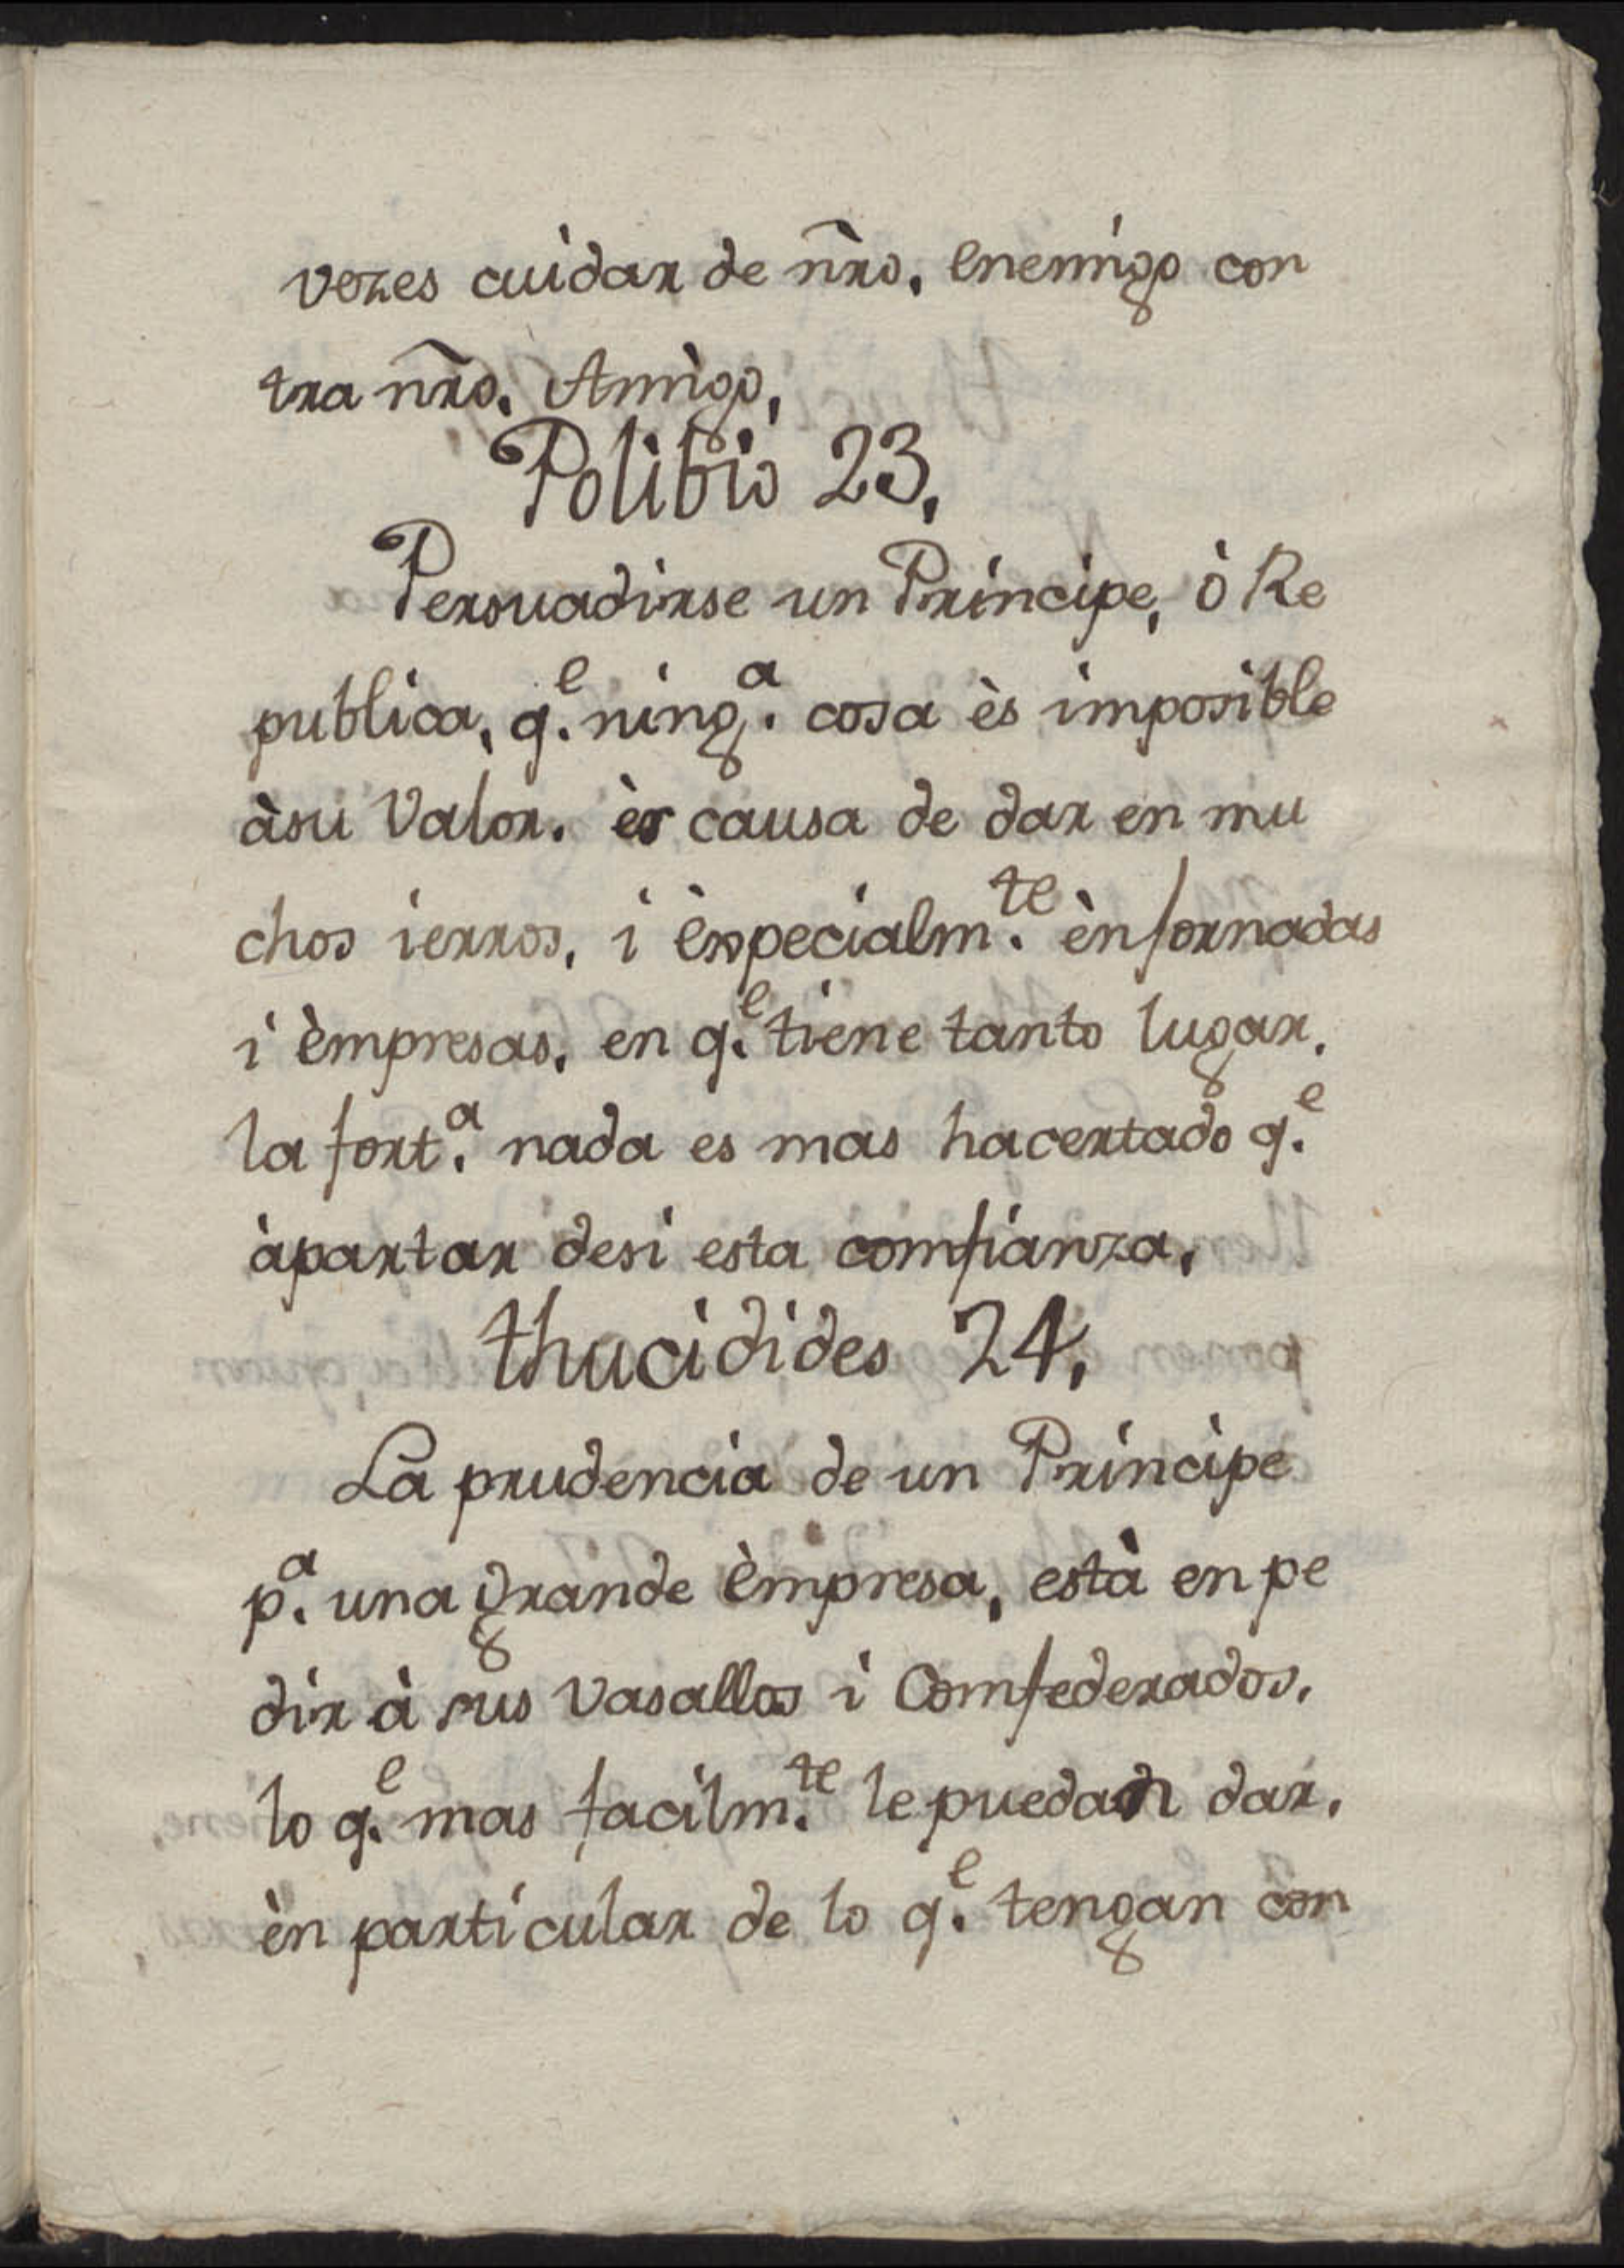 vezes cuidar de nr̃o. enemigo con
tra nr̃o. Amigo,
Polibio 23,
Persuadirse un Principe, ò Re
publica, q.e ning.a cosa ès imposible
àsu Valor. ès causa de dar en mu
chos ierros, i èspecialm.te ènfornadas
i èmpresas, en q.e tiene tanto lugar,
la fort.a nada es mas hacertado q.e
àpartar desi esta comfianza,
thucidides 24,
La prudencia de un Principe
p.a una grande èmpresa, està en pe
dir à sus Vasallos i Comfederados,
lo q.e mas facilm.te le puedan dar,
èn particular de lo q.e tengan con